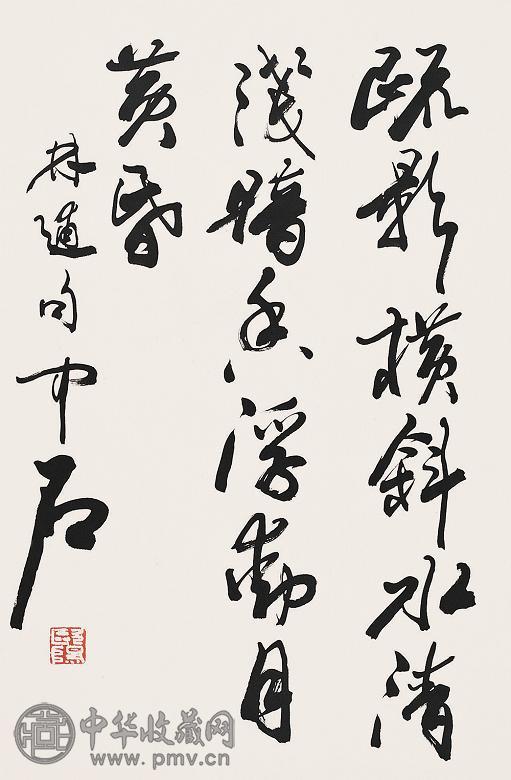 疏影橫斜水清
淺暗香浮動月
黃昏
林逋句中石
中华收藏网
www.pmv.cn